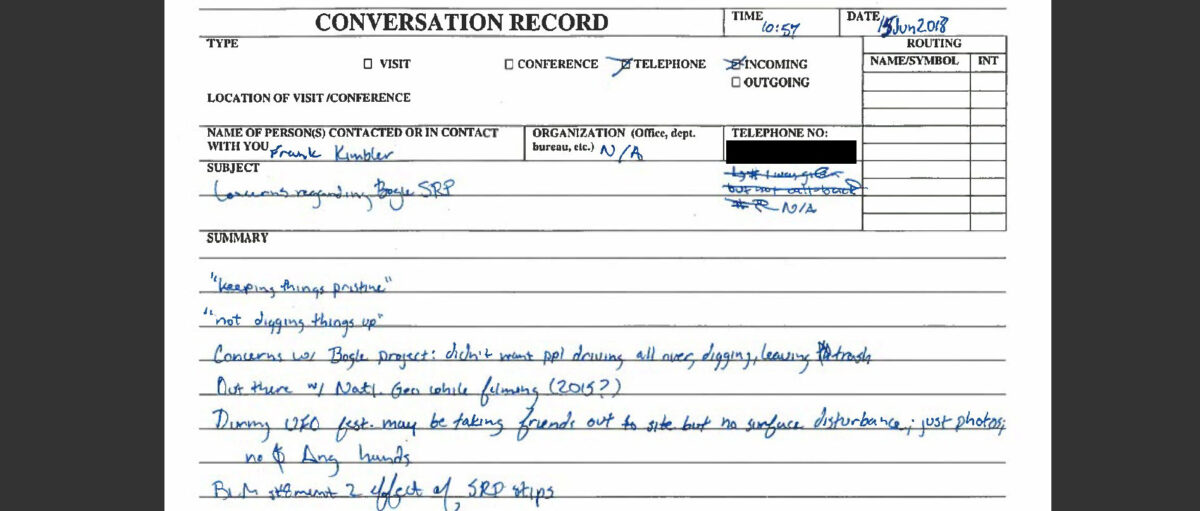 CONVERSATION RECORD
TIME
10:57
DATE
15Jun2018
TYPE
☐ VISIT
☐ CONFERENCE
☒ TELEPHONE
☒ INCOMING
☐ OUTGOING
ROUTING
NAME/SYMBOL
INT
LOCATION OF VISIT /CONFERENCE
NAME OF PERSON(S) CONTACTED OR IN CONTACT
WITH YOU Frank Kimbler
ORGANIZATION (Office, dept.
bureau, etc.) N/A
TELEPHONE NO:
but not call-back
# N/A
SUBJECT
Concerns regarding Bogle SRP
SUMMARY
"keeping things pristine"
"not digging things up"
Concerns w/ Bogle project: didn't want ppl driving all over, digging, leaving trash
Out there w/ Natl. Geo while filming (2015?)
During UFO fest. may be taking friends out to site but no surface disturbance; just photos;
no $ hands
BLM 2 effect of, SRP stips